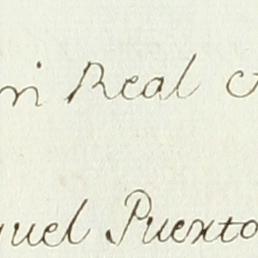 mi Real
guel Puerto